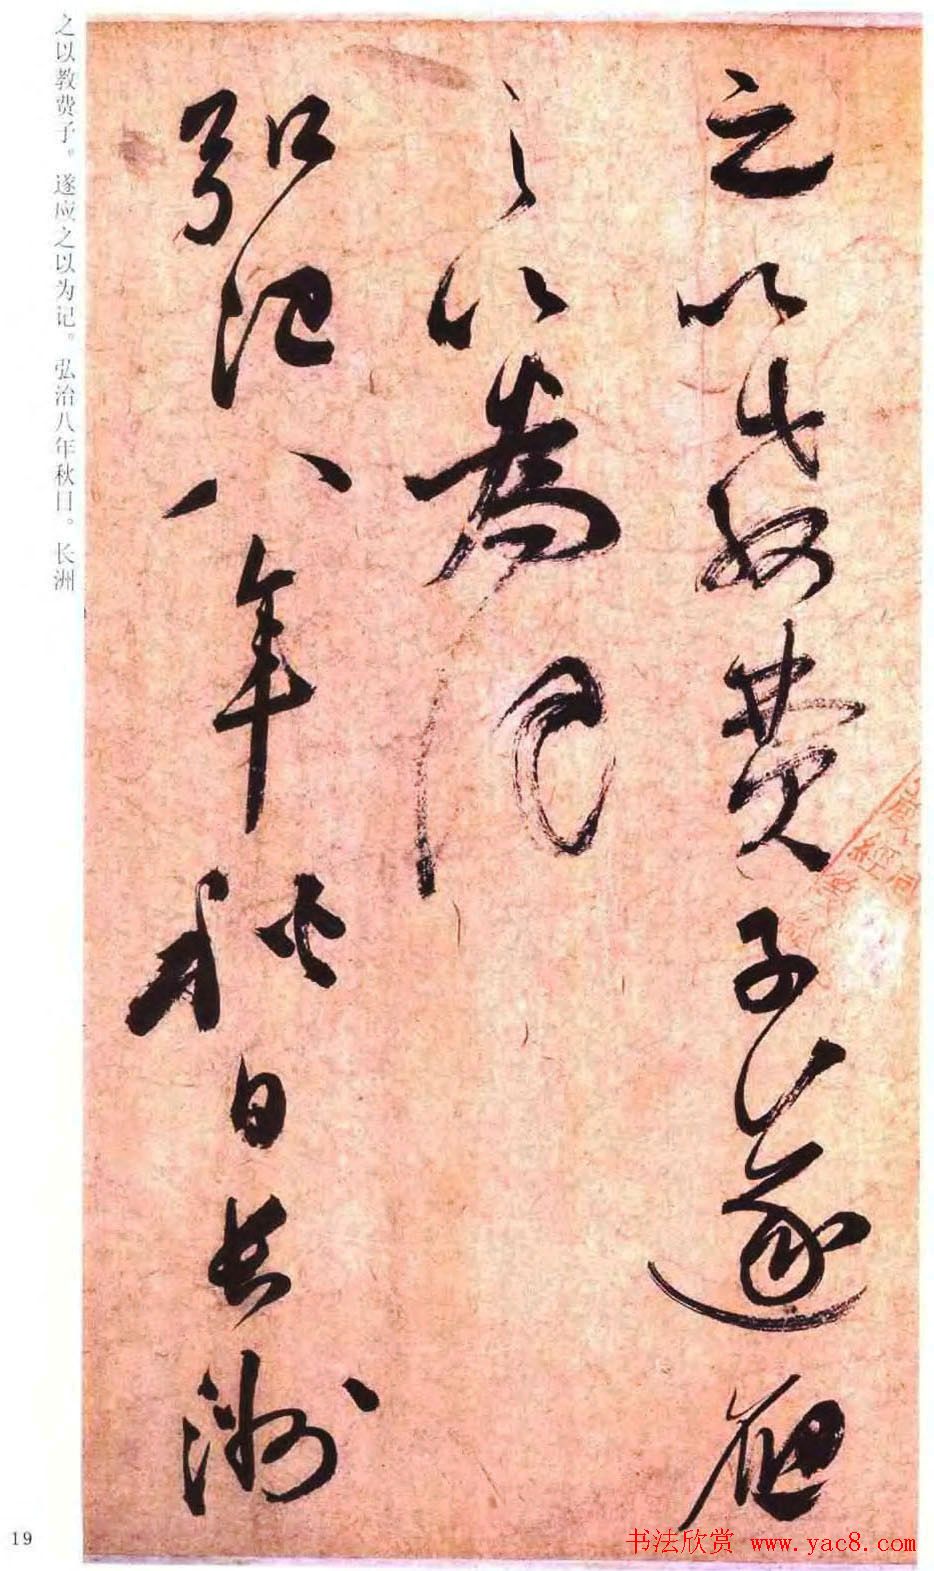 之以教費子遂應
之以為記
弘治八年秋日長洲
之以教费子。遂应之以为记。弘治八年秋日。长洲
19
书法欣赏 www.yac8.com